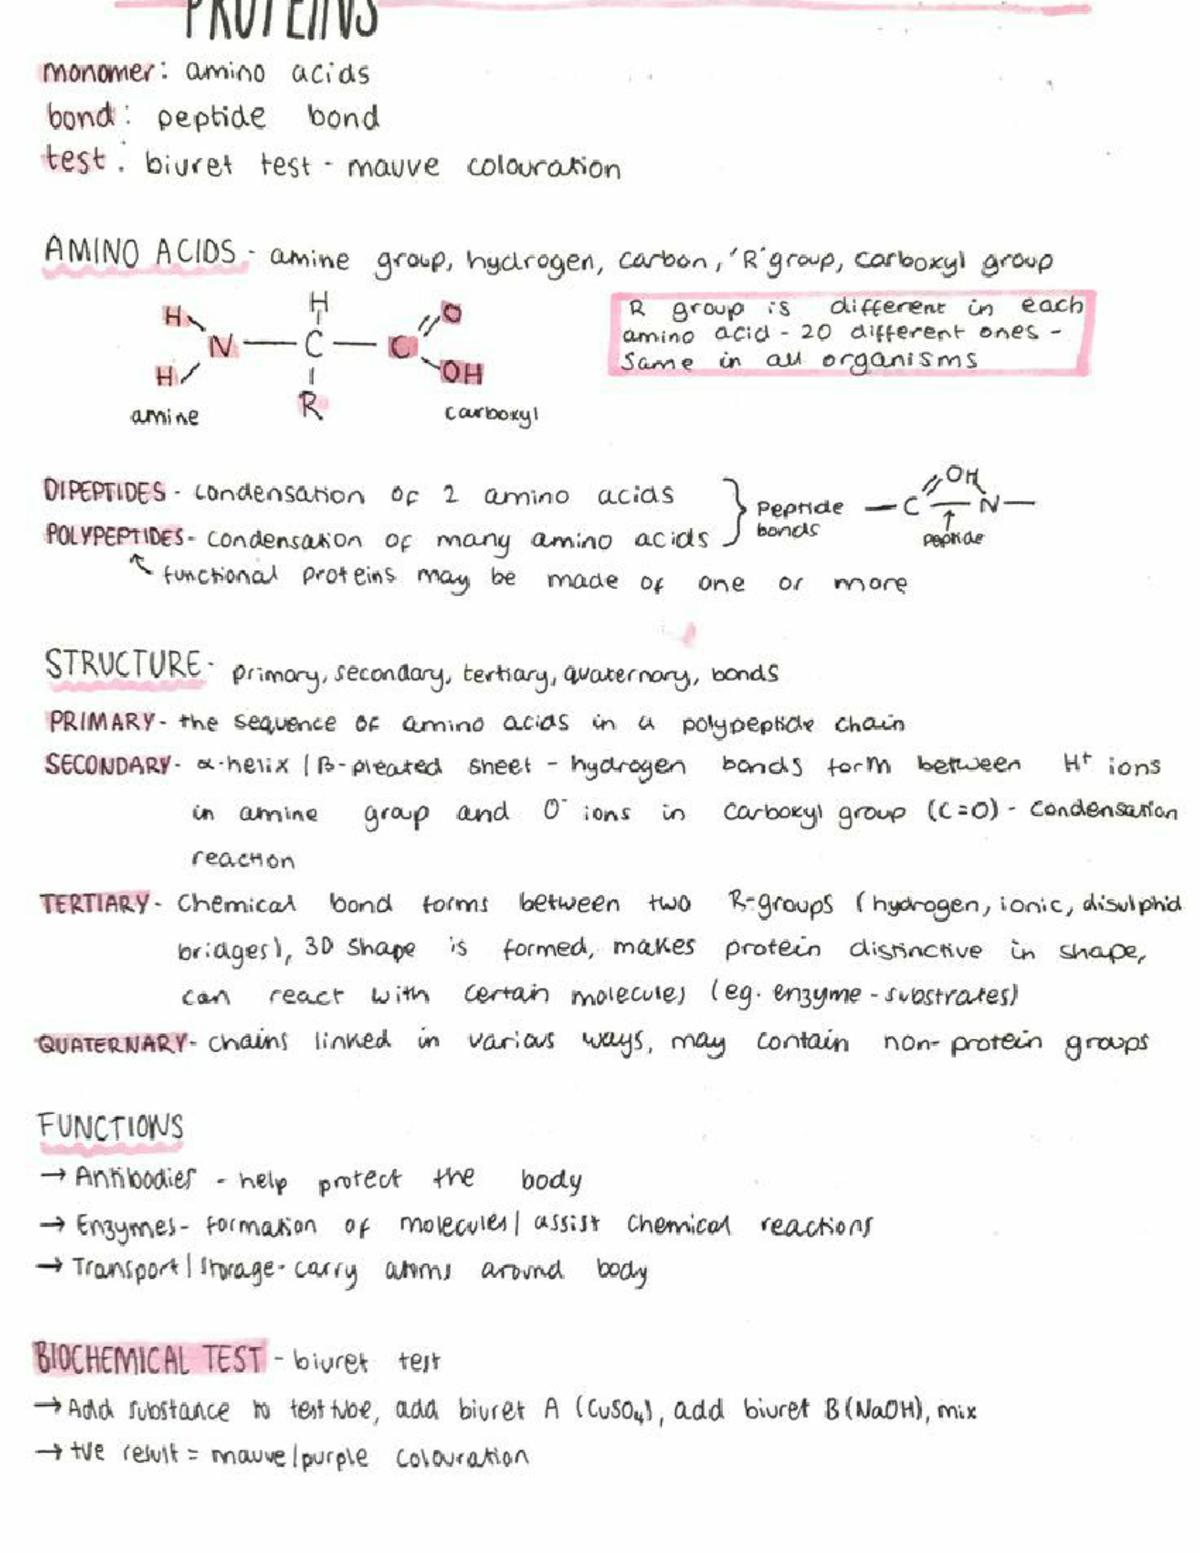 PROTEINS
monomer: amino acids
bond: peptide bond
test: biuret test - mauve colouration
AMINO ACIDS - amine group, hydrogen, carbon, 'R' group, carboxyl group
H
H
N
H
C
R
C
O
OH
amine
carboxyl
R group is different in each
amino acid - 20 different ones -
same in all organisms
DIPEPTIDES - condensation of 2 amino acids
POLYPEPTIDES - condensation of many amino acids
Peptide
bonds
C
OH
N
peptide
functional proteins may be made of one or more
STRUCTURE - primary, secondary, tertiary, quaternary, bonds
PRIMARY - the sequence of amino acids in a polypeptide chain
SECONDARY - α-helix / β-pleated sheet - hydrogen bonds form between H⁺ ions
in amine group and O⁻ ions in carboxyl group (C=O) - condensation
reaction
TERTIARY - Chemical bond forms between two R-groups (hydrogen, ionic, disulphid
bridges), 3D shape is formed, makes protein distinctive in shape,
can react with certain molecules (eg. enzyme - substrates)
QUATERNARY - chains linked in various ways, may contain non-protein groups
FUNCTIONS
→ Antibodies - help protect the body
→ Enzymes - formation of molecules / assist chemical reactions
→ Transport / storage - carry atoms around body
BIOCHEMICAL TEST - biuret test
→ Add substance to test tube, add biuret A (CuSO₄), add biuret B (NaOH), mix
→ +ve result = mauve/purple colouration